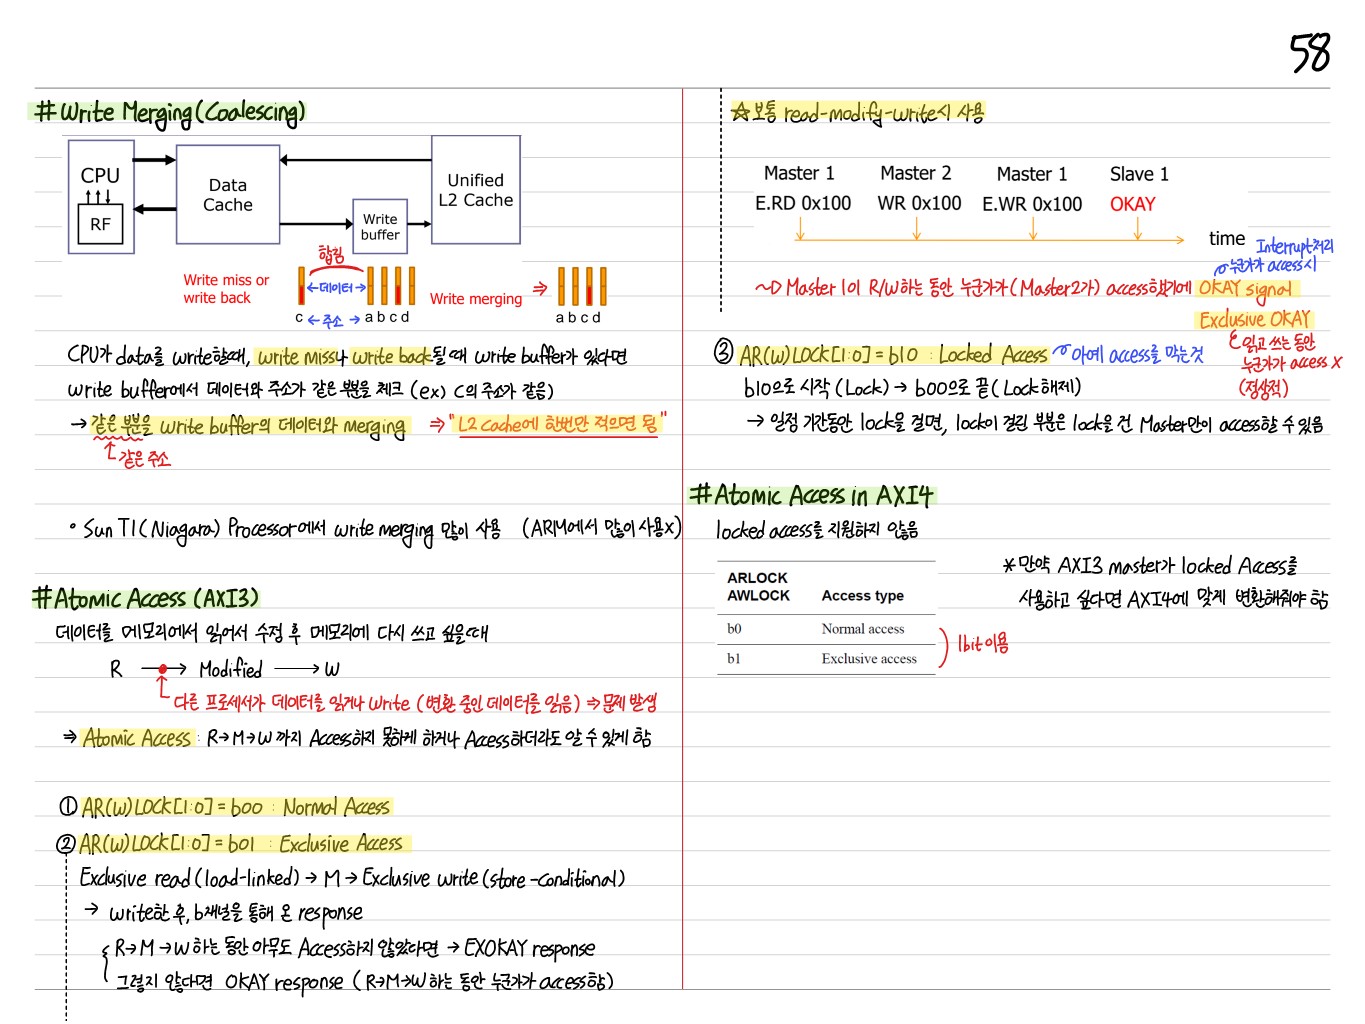 58
#Write Merging(Coalescing)
CPU
RF
Data
Cache
Write
buffer
Unified
L2 Cache
합침
Write miss or
write back
데이터
Write merging
c
주소
a b c d
a b c d
CPU가 data를 write할때, write miss나 write back될 때 write buffer가 있다면
write buffer에서 데이터와 주소가 같은 부분을 체크 (ex) C의 주소가 같음)
→ 같은 부분을 write buffer의 데이터와 merging ⇒ "L2 Cache에 한번만 적으면 됨"
같은 주소
• Sun T1(Niagara) Processor에서 write merging 많이 사용 (ARM에서 많이 사용x)
#Atomic Access (AXI3)
데이터를 메모리에서 읽어서 수정 후 메모리에 다시 쓰고 싶을때
R → Modified → W
다른 프로세서가 데이터를 읽거나 Write (변환 중인 데이터를 읽음) ⇒ 문제 발생
⇒ Atomic Access : R→M→W 까지 Access하지 못하게 하거나 Access하더라도 알 수 있게 함
① AR(W)LOCK[1:0] = b00 : Normal Access
② AR(W)LOCK[1:0] = b01 : Exclusive Access
Exclusive read (load-linked) → M → Exclusive write (store-conditional)
→ write한 후, b채널을 통해 온 response
R→M→W 하는 동안 아무도 Access하지 않았다면 → EXOKAY response
그렇지 않다면 OKAY response (R→M→W 하는 동안 누군가가 access함)
☆보통 read-modify-write시 사용
Master 1
Master 2
Master 1
Slave 1
E.RD 0x100
WR 0x100
E.WR 0x100
OKAY
time
Interrupt처리
누군가가 access시
~▷ Master 1이 R/W하는 동안 누군가가(Master2가) access했기에 OKAY signal
Exclusive OKAY
읽고 쓰는 동안
누군가가 access X
(정상적)
③ AR(W)LOCK[1:0] = b10 : Locked Access 아예 access를 막는것
b10으로 시작 (Lock) → b00으로 끝 (Lock해제)
→ 일정 기간동안 lock을 걸면, lock이 걸린 부분은 lock을 건 Master만이 access할 수 있음
#Atomic Access in AXI4
locked access를 지원하지 않음
ARLOCK
AWLOCK Access type
b0 Normal access
b1 Exclusive access
1bit 이용
*만약 AXI3 master가 locked Access를
사용하고 싶다면 AXI4에 맞게 변환해줘야 함